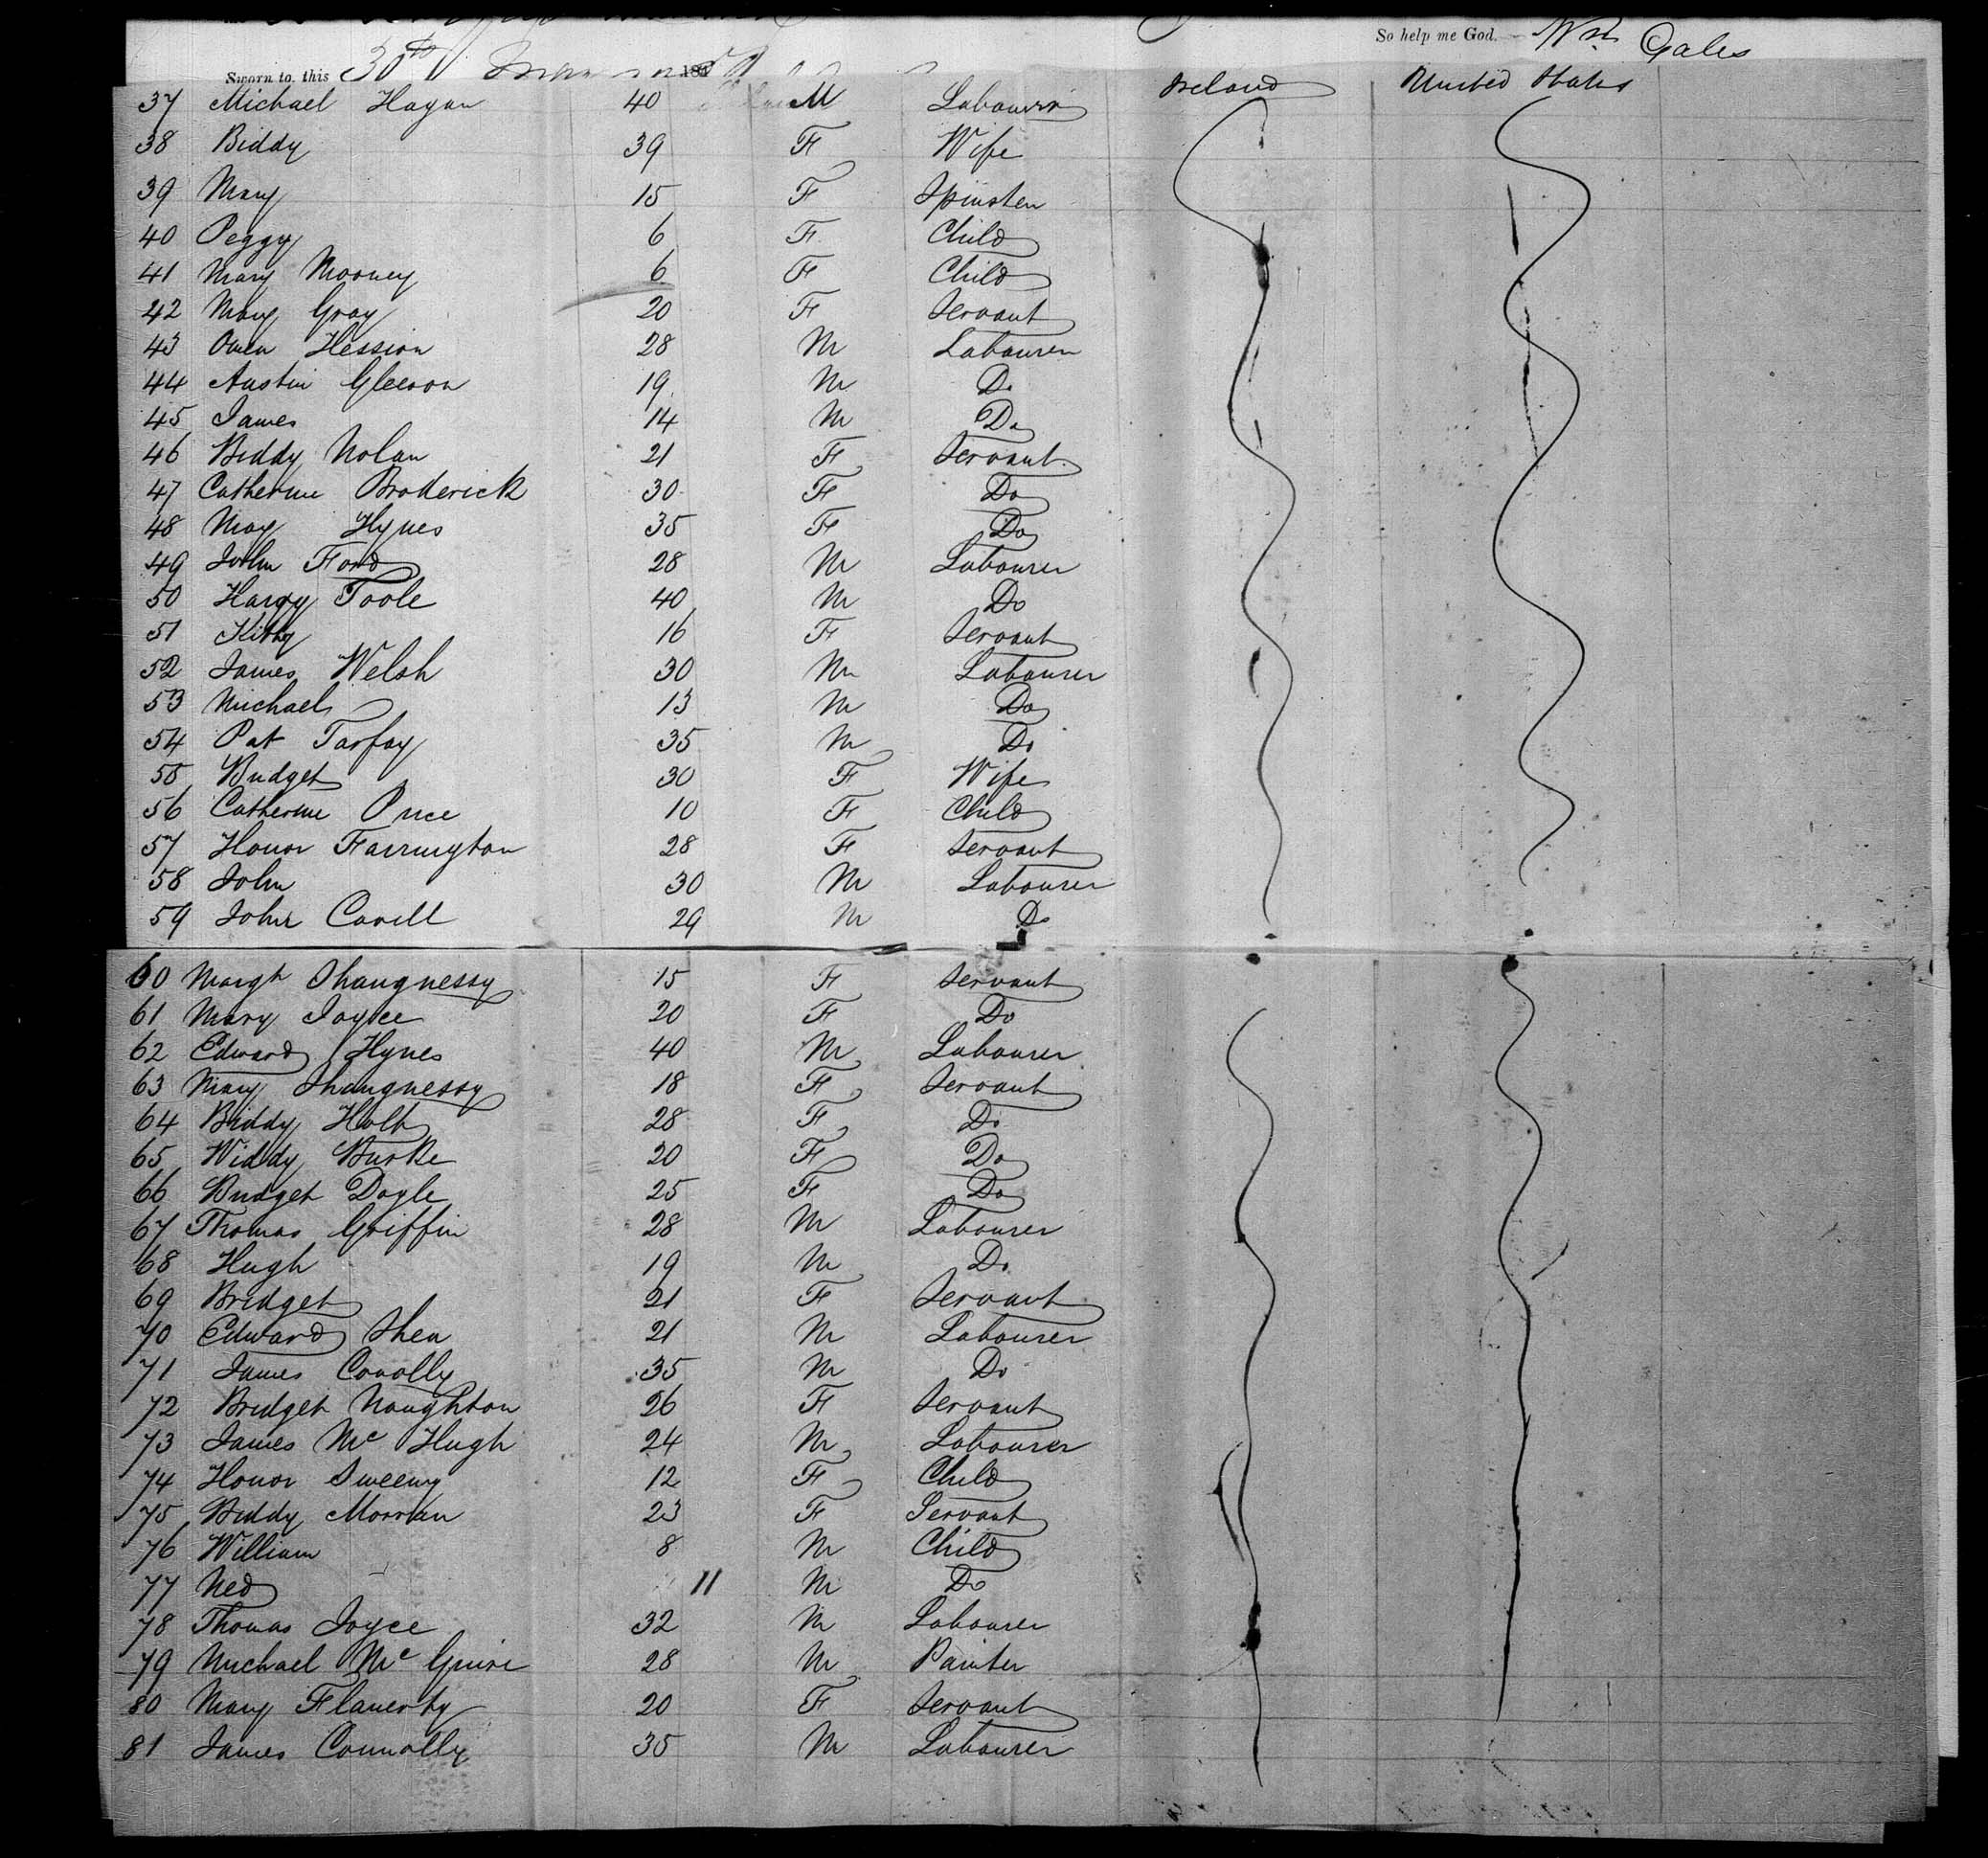 So help me God. Wm Gales
Sworn to, this 30th
37 Michael Hagan 40 M Labourer Ireland United States
38 Biddy 39 F Wife
39 Mary 15 F Spinster
40 Peggy 6 F Child
41 Mary Mooney 6 F Child
42 Mary Gray 20 F Servant
43 Owen Hession 28 M Labourer
44 Austin Gleeson 19 M Do
45 James 14 M Do
46 Biddy Nolan 21 F Servant
47 Catherine Broderick 30 F Do
48 May Hynes 35 F Do
49 John Ford 28 M Labourer
50 Harry Toole 40 M Do
51 Kitty 16 F Servant
52 James Welsh 30 M Labourer
53 Michael 13 M Do
54 Pat Tarfay 35 M Do
55 Bridget 30 F Wife
56 Catherine Price 10 F Child
57 Honor Farrington 28 F Servant
58 John 30 M Labourer
59 John Cavell 29 M Do
60 Margt Shaugnessy 15 F Servant
61 Mary Joyce 20 F Do
62 Edward Hynes 40 M Labourer
63 Mary Shaugnessy 18 F Servant
64 Biddy Holt 28 F Do
65 Widdy Burke 20 F Do
66 Bridget Doyle 25 F Do
67 Thomas Griffin 28 M Labourer
68 Hugh 19 M Do
69 Bridget 21 F Servant
70 Edward Shea 21 M Labourer
71 James Conolly 35 M Do
72 Bridget Naughton 26 F Servant
73 James Mc Hugh 24 M Labourer
74 Honor Sweeny 12 F Child
75 Biddy Morran 23 F Servant
76 William 8 M Child
77 Ned 11 M Do
78 Thomas Joyce 32 M Labourer
79 Michael Mc Guire 28 M Painter
80 Mary Flaherty 20 F Servant
81 James Connolly 35 M Labourer